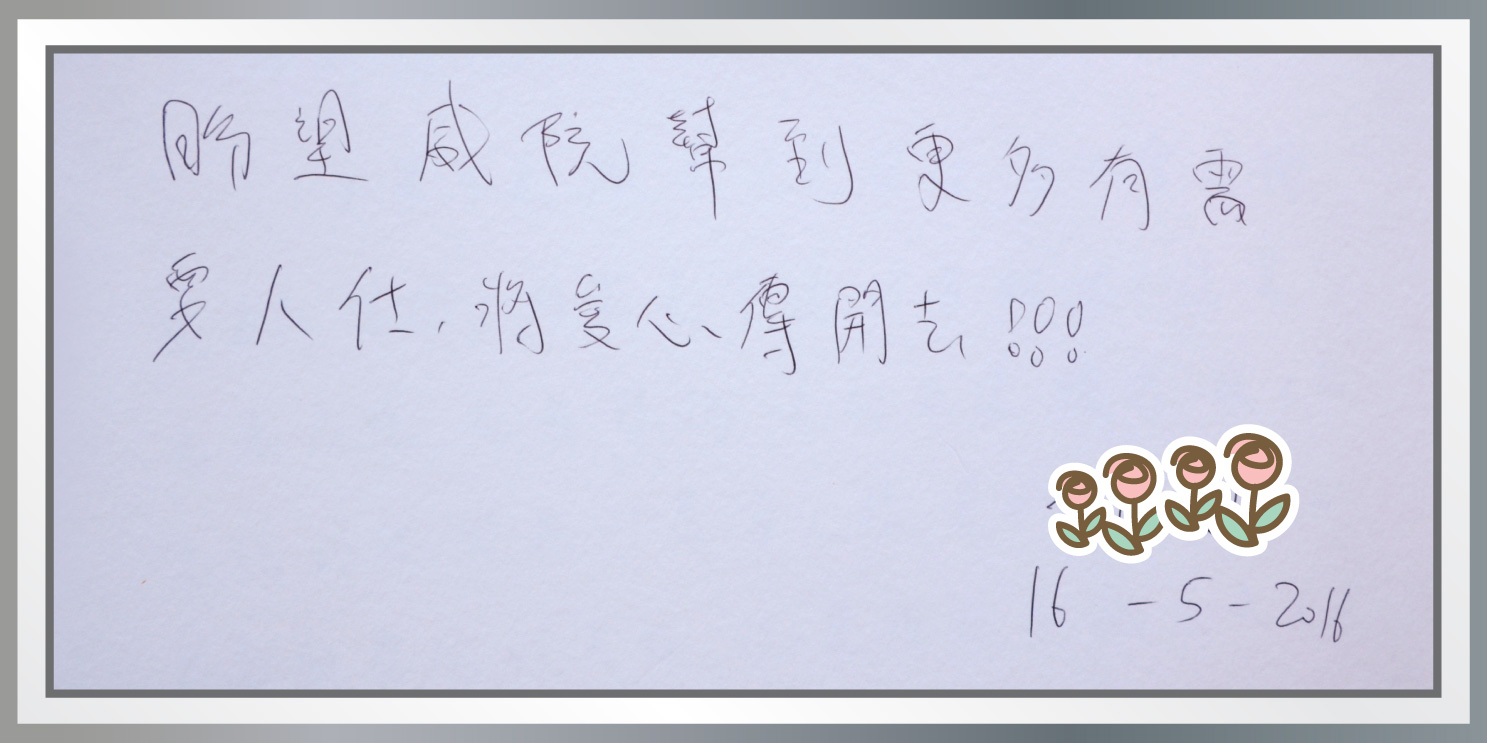 盼望威院幫到更多有需
要人仕,將愛心傳開去!!!
16-5-2016